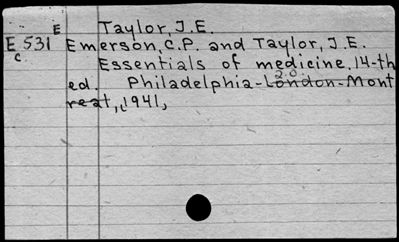 E Taylor, J.E.
E 531 Emerson, C.P. and Taylor, J.E.
c. Essentials of medicine. 14-th
ed. Philadelphia-London-Mont
real, 1941,